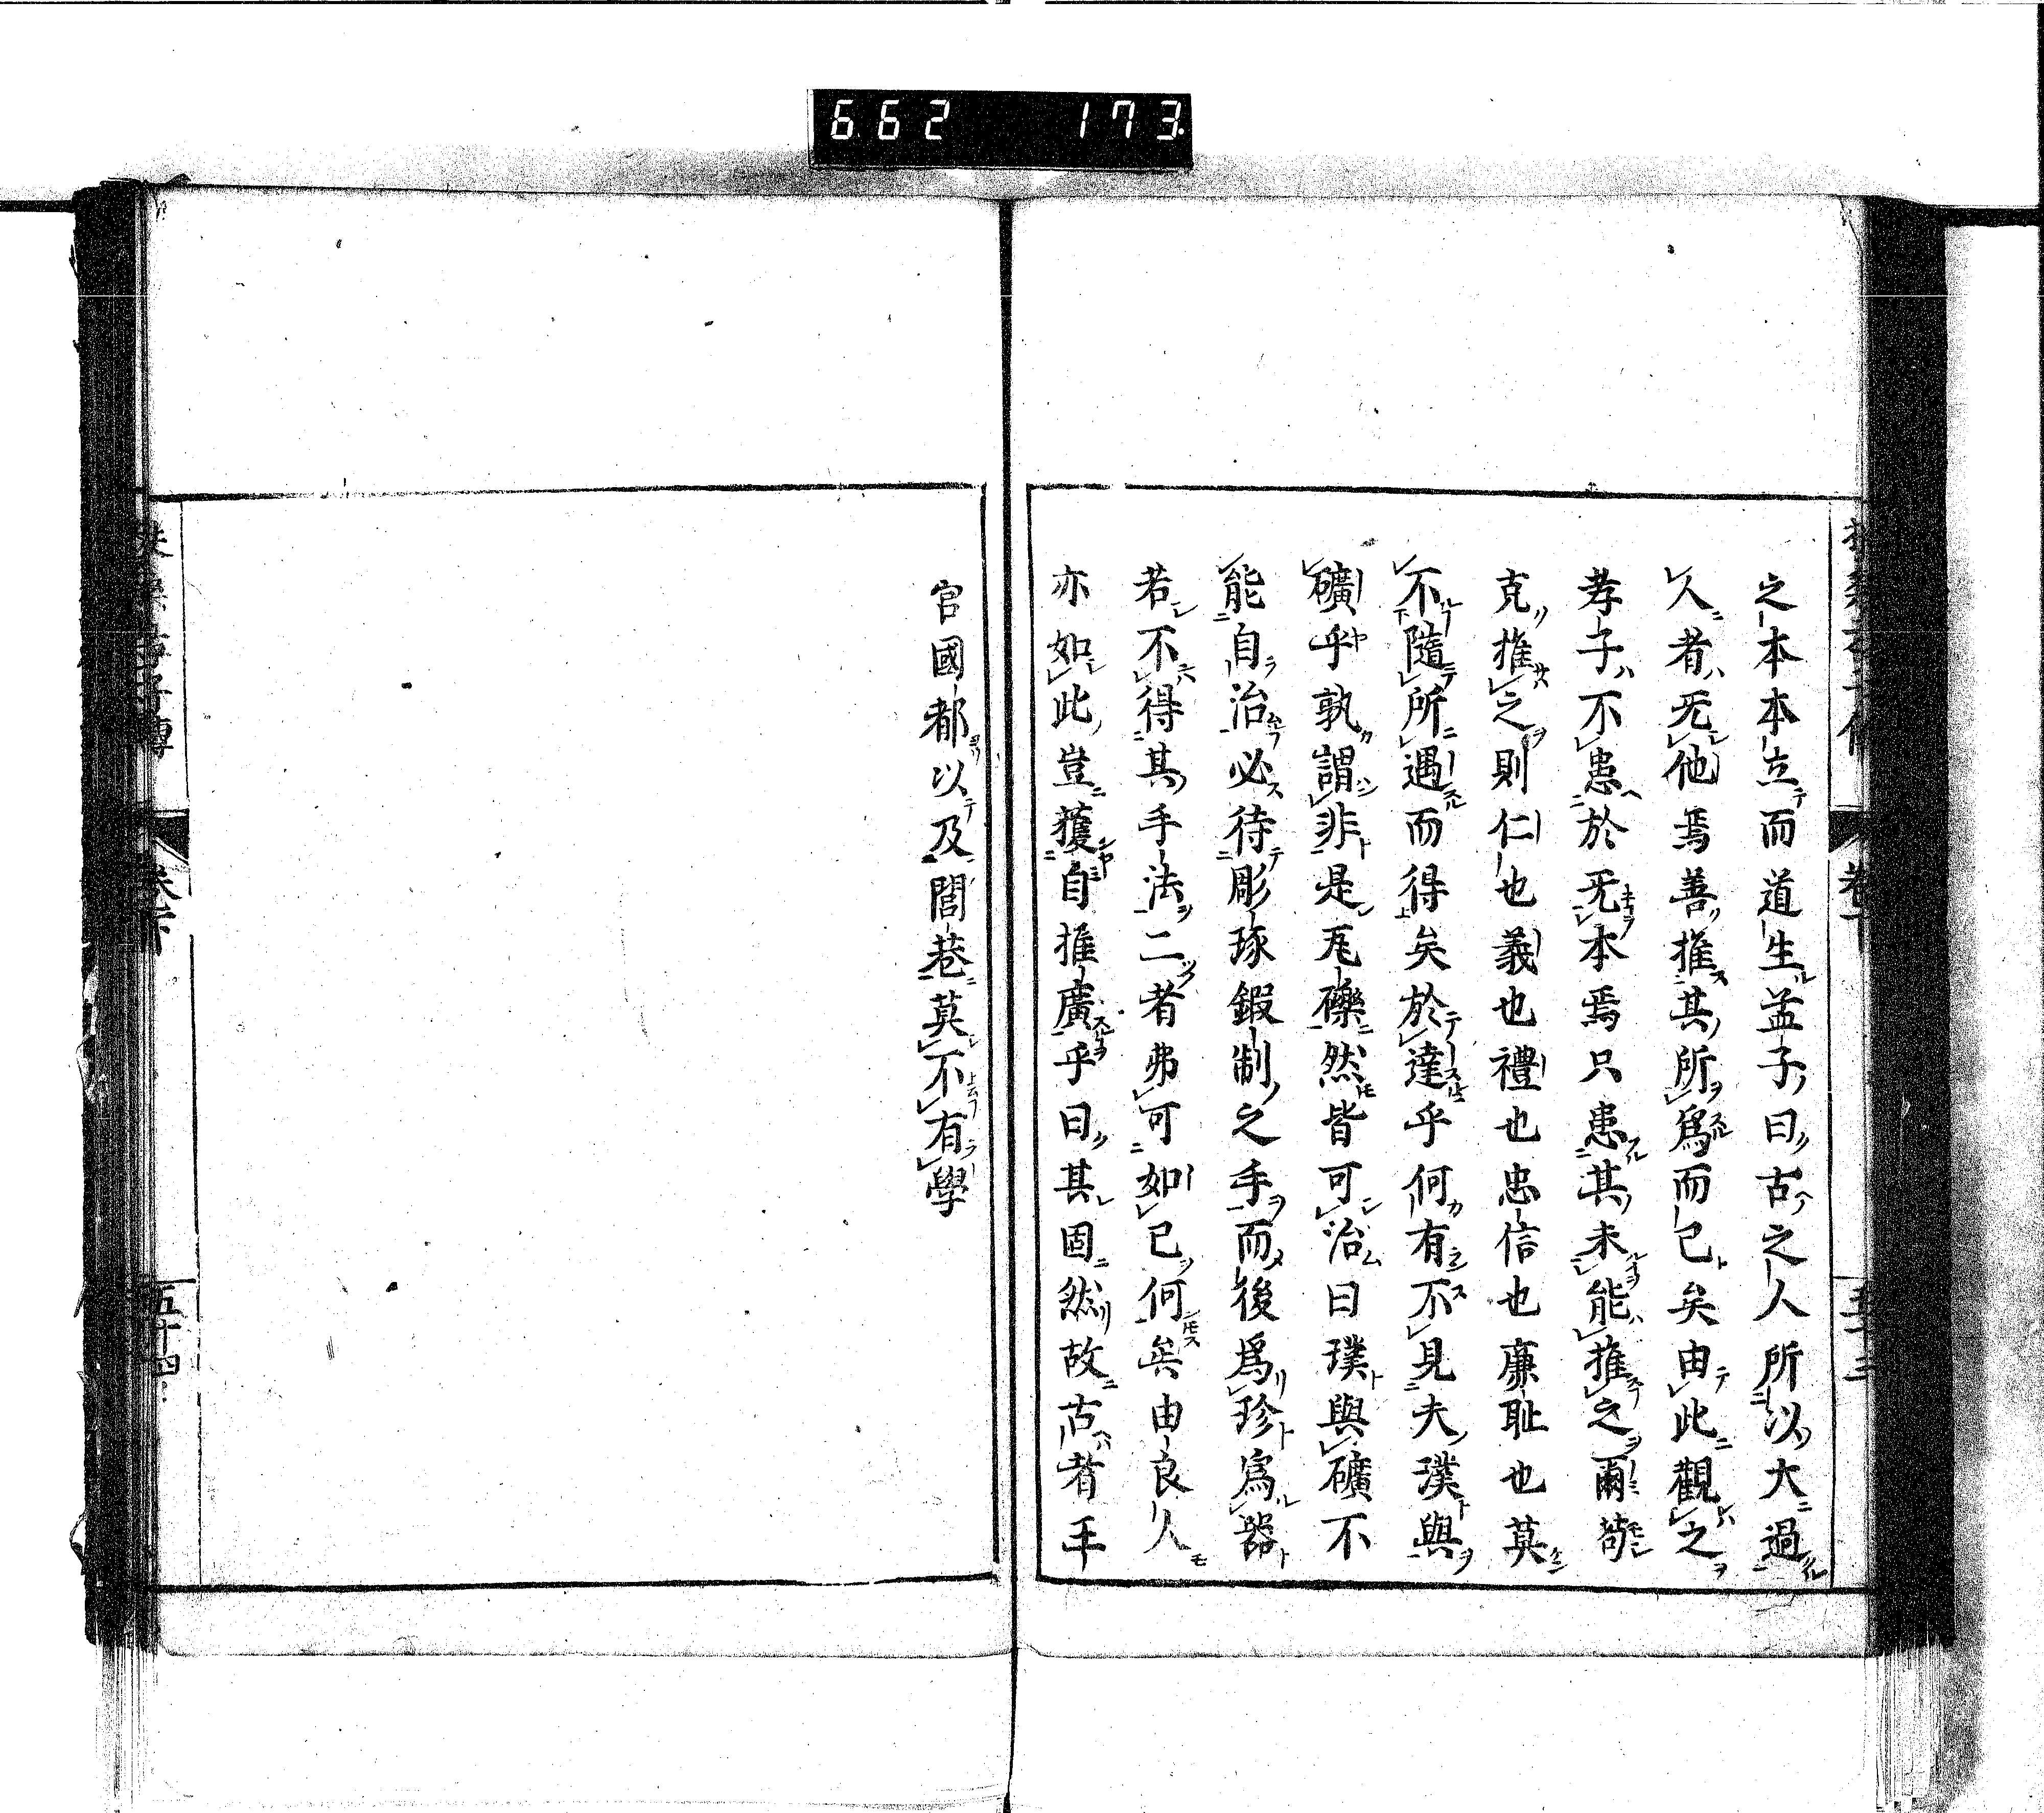 662 173
之本本立而道生孟子曰古之人所以大過
人者无他焉善推其所爲而已矣由此觀之
孝子不患於无本焉只患其未能推之爾苟
克推之則仁也義也禮也忠信也廉耻也莫
不隨所遇而得矣於達乎何有不見夫璞與
礦乎孰謂非是瓦礫然皆可治曰璞與礦不
能自治必待彫琢鍜制之手而後爲珍爲器
若不得其手法二者弗可如已何矣由良人
亦如此豈獲自推廣乎曰其固然故古者王
五十三
官國都以及閭巷莫不有學
五十四